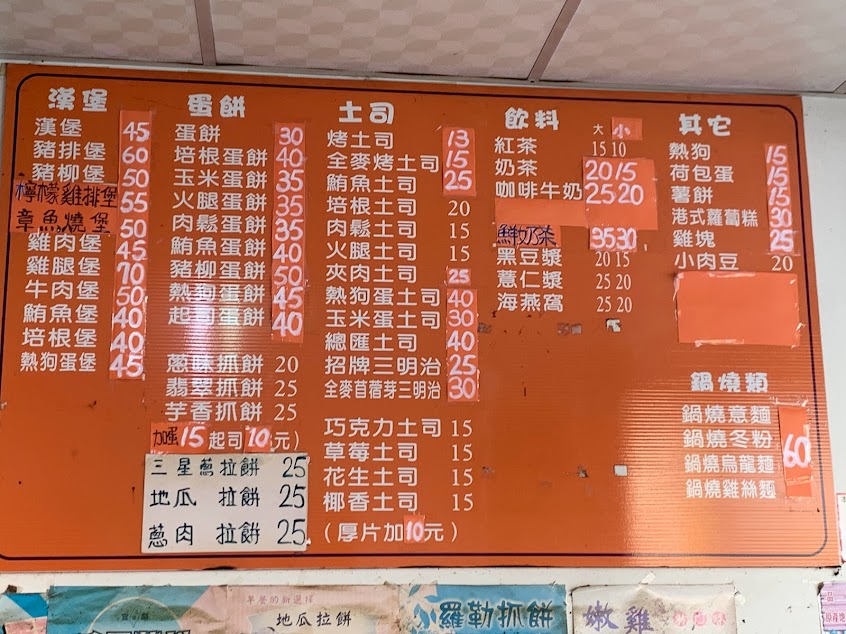 漢堡
漢堡 45
豬排堡 60
豬柳堡 50
檸檬雞排堡 55
章魚燒堡 50
雞肉堡 45
雞腿堡 70
牛肉堡 50
鮪魚堡 40
培根堡 40
熱狗蛋堡 45
蛋餅
蛋餅 30
培根蛋餅 40
玉米蛋餅 35
火腿蛋餅 35
肉鬆蛋餅 35
鮪魚蛋餅 40
豬柳蛋餅 50
熱狗蛋餅 45
起司蛋餅 40
蔥味抓餅 20
翡翠抓餅 25
芋香抓餅 25
加蛋15 起司10元)
三星蔥拉餅 25
地瓜 拉餅 25
蔥肉 拉餅 25
土司
烤土司 13
全麥烤土司 15
鮪魚土司 25
培根土司 20
肉鬆土司 15
火腿土司 15
夾肉土司 25
熱狗蛋土司 40
玉米蛋土司 30
總匯土司 40
招牌三明治 25
全麥苜蓿芽三明治 30
巧克力土司 15
草莓土司 15
花生土司 15
椰香土司 15
(厚片加10元)
飲料 大 小
紅茶 15 10
奶茶 20 15
咖啡牛奶 25 20
鮮奶茶 35 30
黑豆漿 20 15
薏仁漿 25 20
海燕窩 25 20
其它
熱狗 15
荷包蛋 15
薯餅 15
港式蘿蔔糕 30
雞塊 25
小肉豆 20
鍋燒類
鍋燒意麵
鍋燒冬粉 60
鍋燒烏龍麵
鍋燒雞絲麵
早餐的新選擇
地瓜拉餅
羅勒抓餅
嫩雞